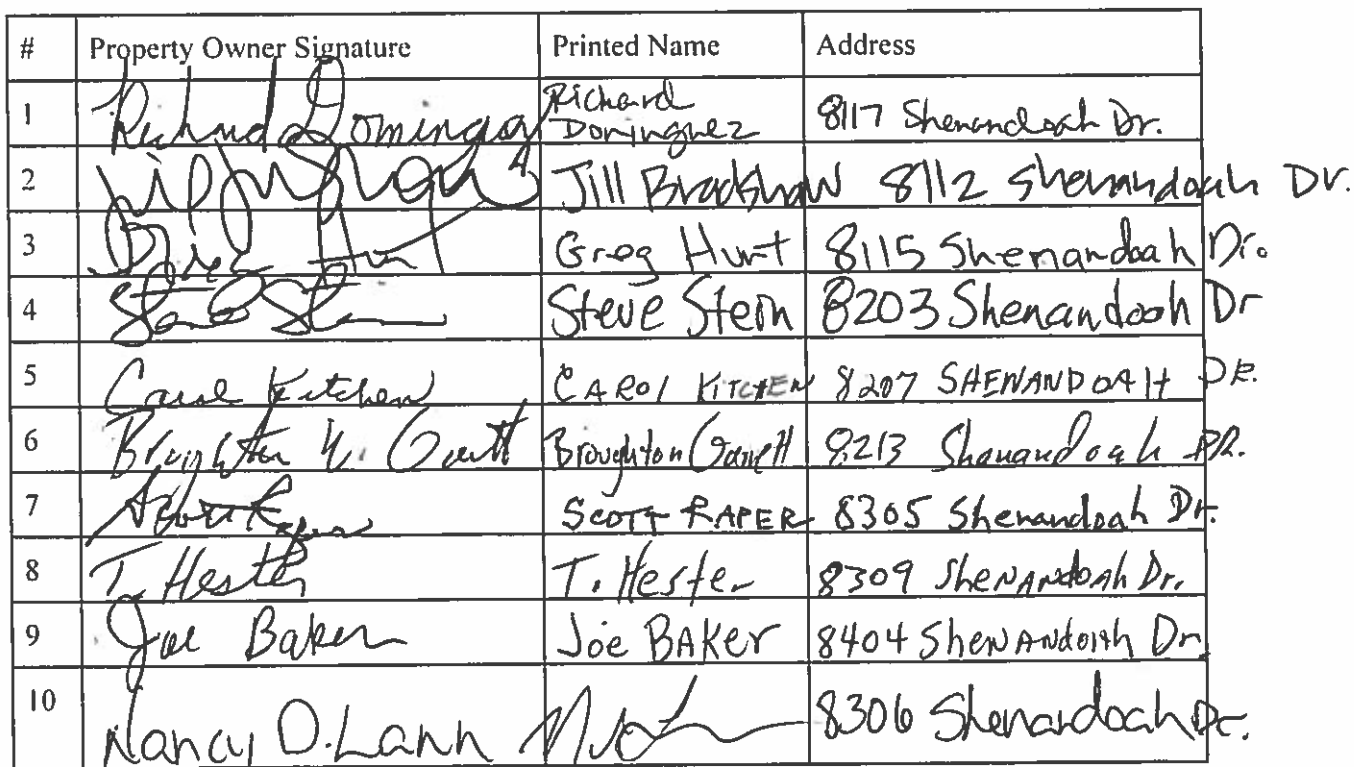 # Property Owner Signature Printed Name Address
1 Richard Dominguez Richard
Dominguez 8117 Shenandoah Dr.
2 Jill Bradshaw 8112 Shenandoah Dr.
3 Greg Hurt Greg Hurt 8115 Shenandoah Dr.
4 Steve Stern Steve Stern 8203 Shenandoah Dr
5 Carol Kitchen CAROL KITCHEN 8207 SHENANDOAH DR.
6 Broughton Garrett 8213 Shanandoah DR.
7 Scott Raper SCOTT RAPER 8305 Shenandoah Dr.
8 T. Hester T. Hester 8309 Shenandoah Dr.
9 Joe Baker Joe BAKER 8404 Shenandoah Dr.
10 Nancy D. Lann 8306 Shenandoah Dr.